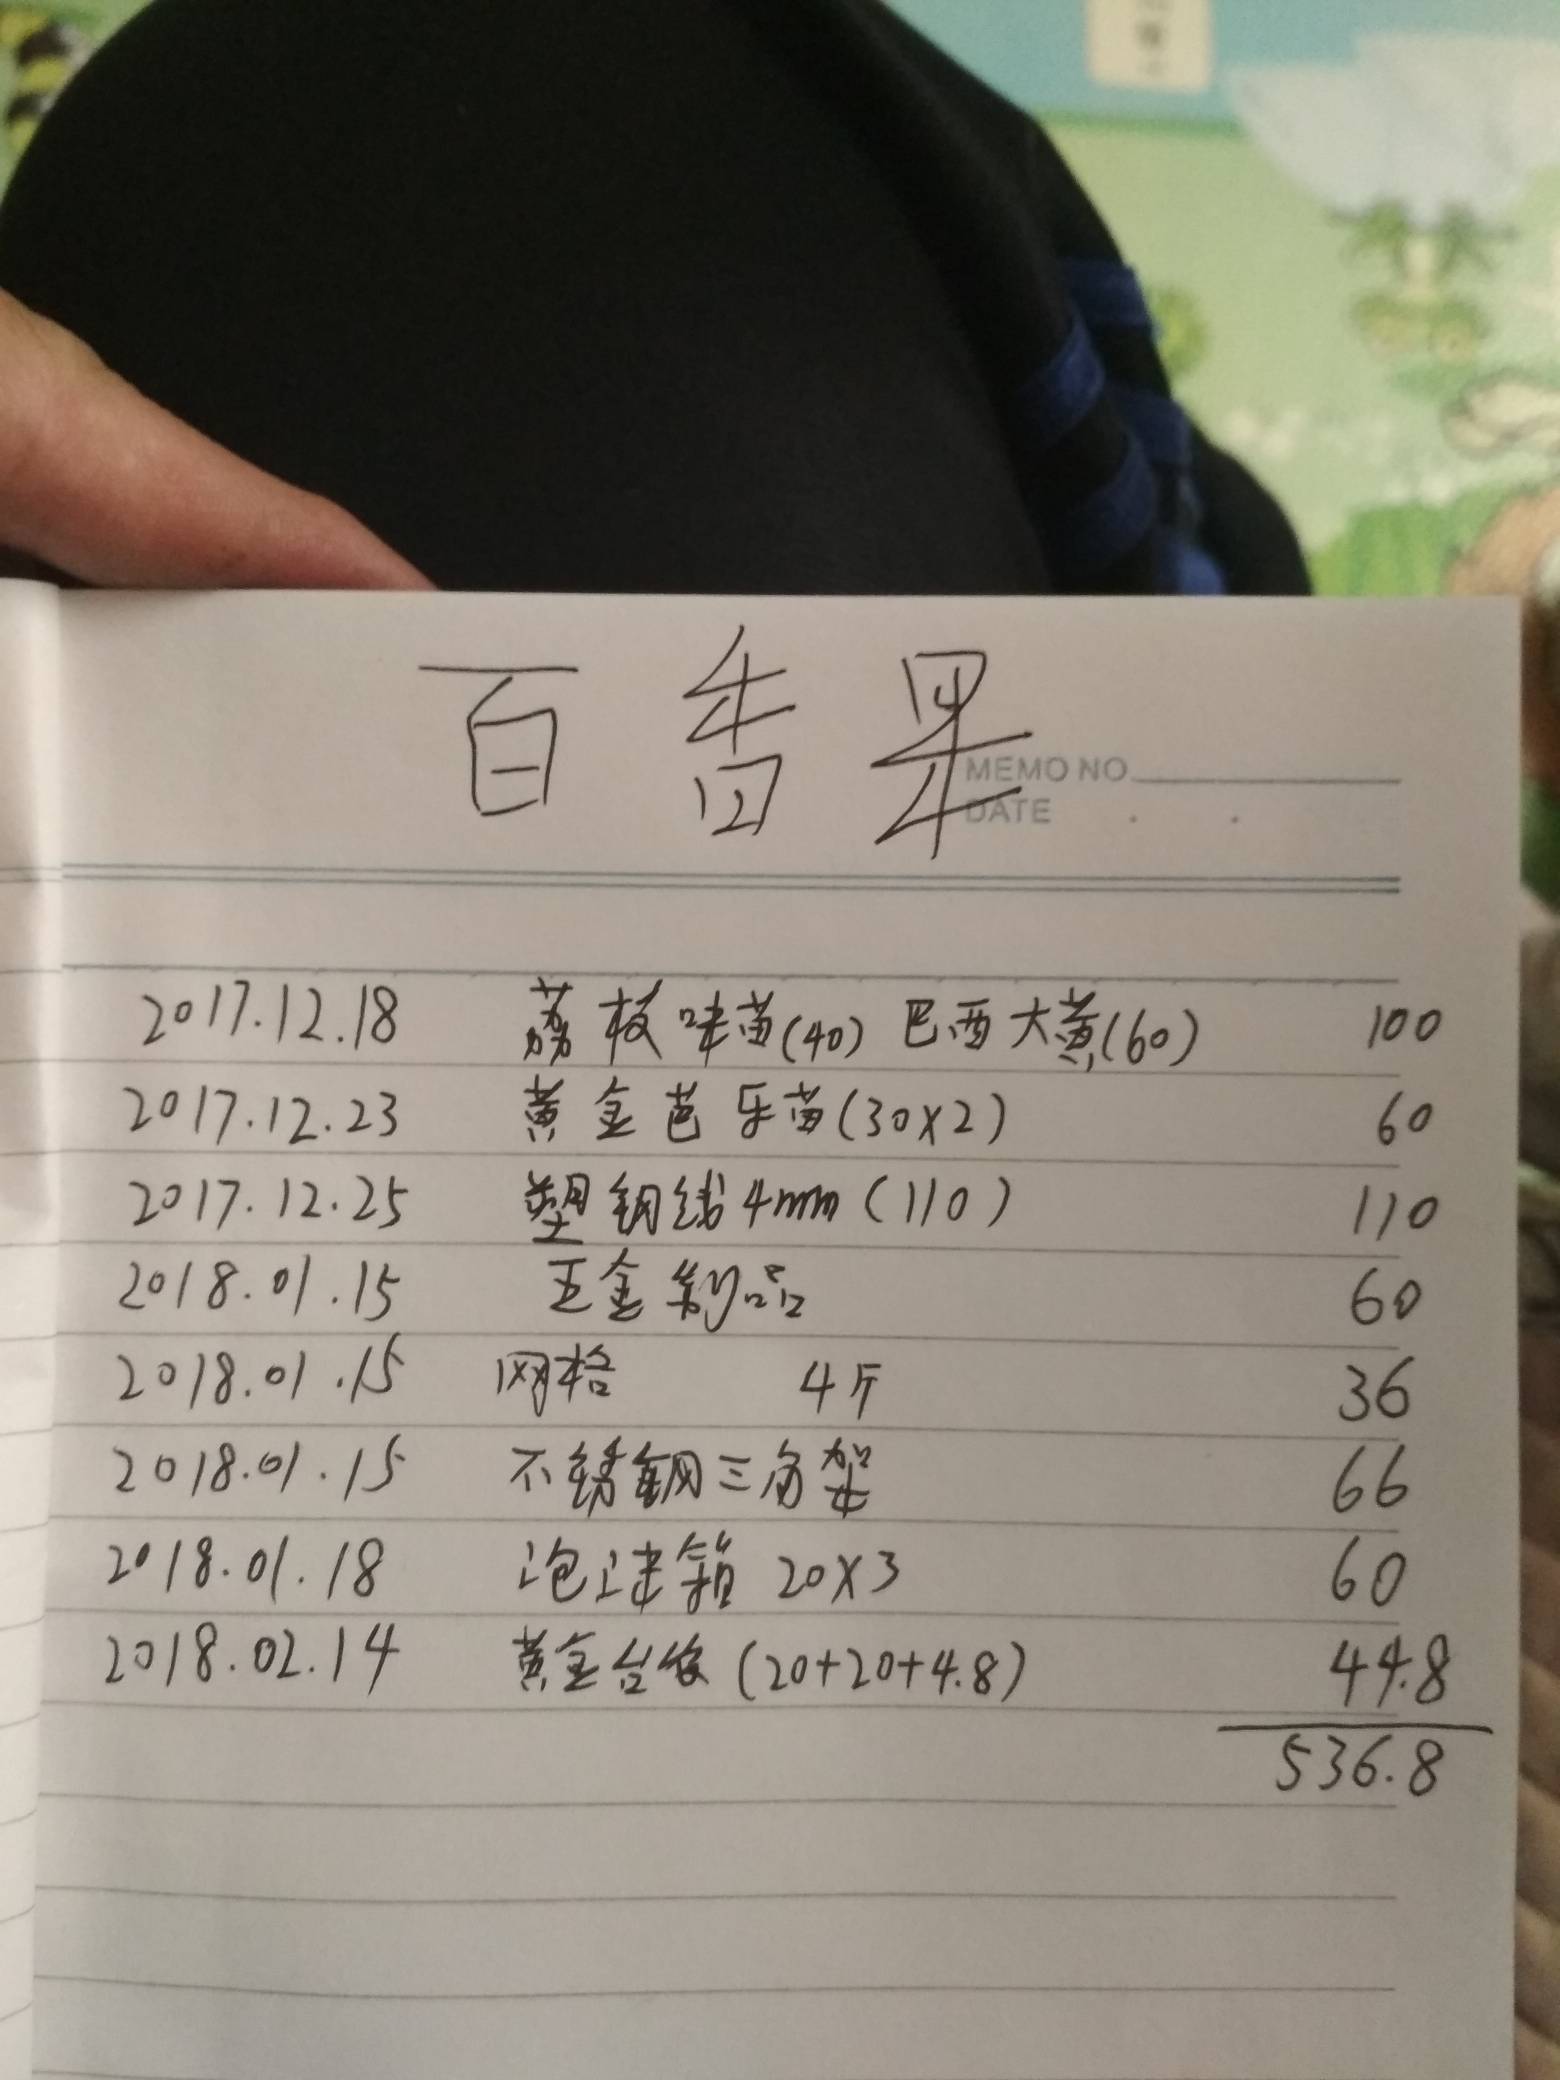 百香果
MEMO NO
DATE . .
2017.12.18 荔枝味苗(40) 巴西大黄(60) 100
2017.12.23 黄金芭乐苗(30X2) 60
2017.12.25 塑钢线4mm(110) 110
2018.01.15 五金制品 60
2018.01.15 网格 4斤 36
2018.01.15 不锈钢三角架 66
2018.01.18 泡沫箱 20X3 60
2018.02.14 黄金台农(20+20+4.8) 44.8
536.8